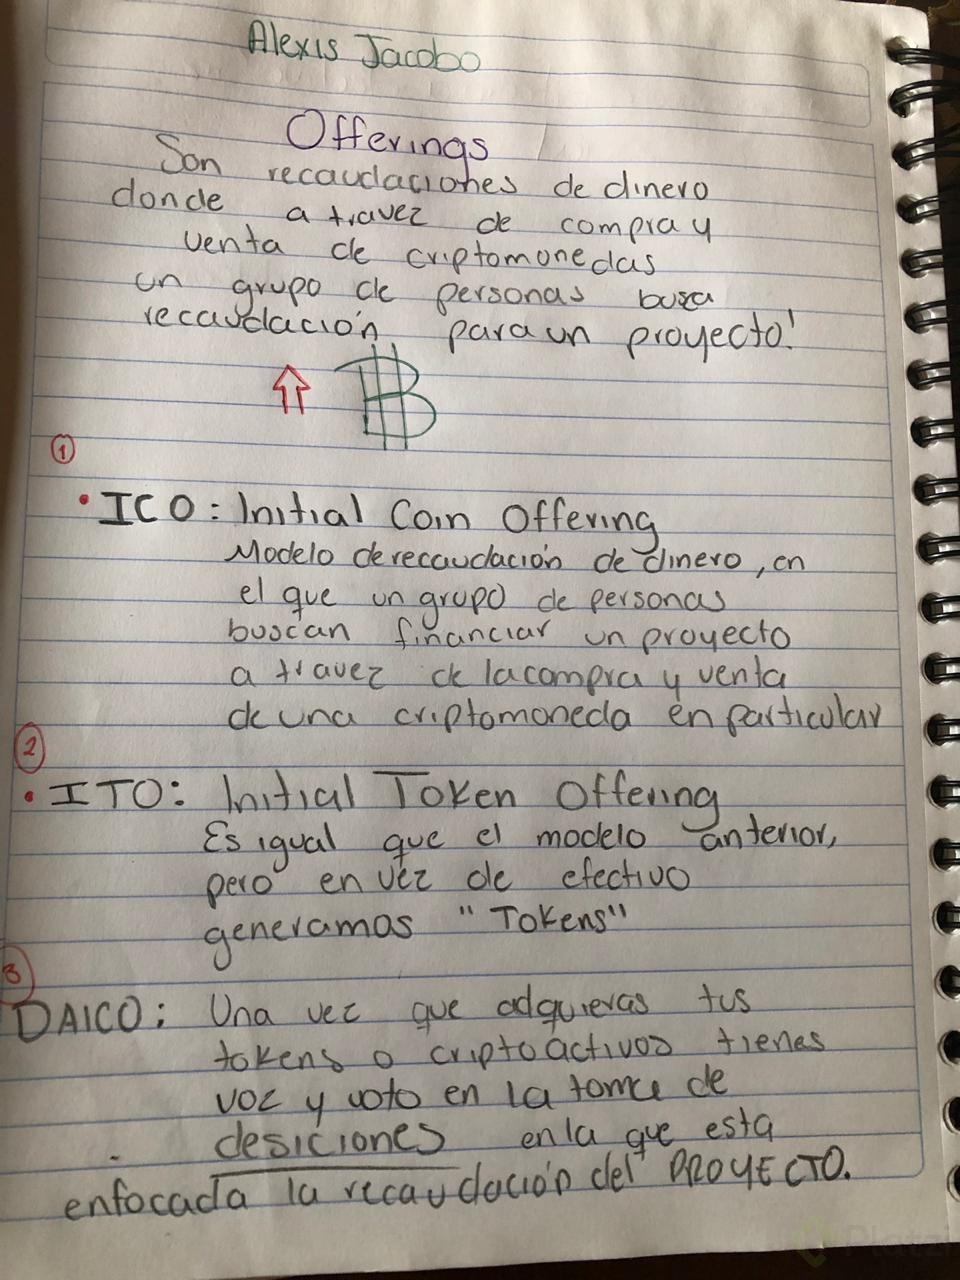 Alexis Jacobo
Offerings
Son recaudaciones de dinero
donde a travez de compra y
venta de criptomonedas
un grupo de personas busca
recaudación para un proyecto!
1
• ICO: Initial Coin Offering
Modelo de recaudación de dinero, en
el que un grupo de personas
buscan financiar un proyecto
a travez de la compra y venta
de una criptomoneda en particular
2
• ITO: Initial Token Offering
Es igual que el modelo anterior,
pero en vez de efectivo
generamos "Tokens"
3
DAICO: Una vez que adquieras tus
tokens o criptoactivos tienes
voz y voto en la toma de
desiciones en la que esta
enfocada la recaudación del PROYECTO.
Platzi